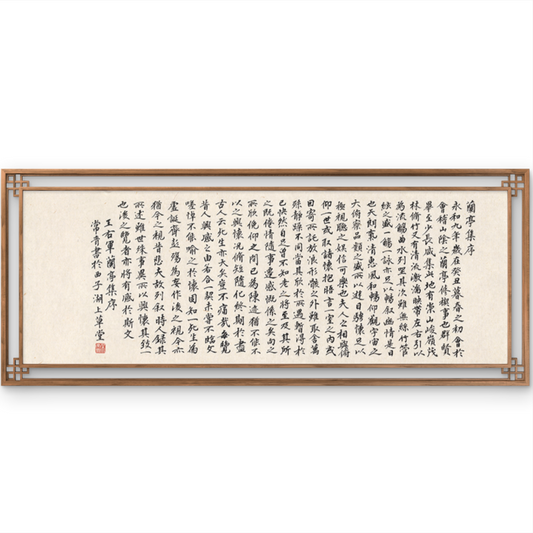 蘭亭集序
永和九年歲在癸丑暮春之初會於
會稽山陰之蘭亭修禊事也群賢
畢至少長咸集此地有崇山峻嶺茂
林修竹又有清流激湍映帶左右引以
為流觴曲水列坐其次雖無絲竹管
弦之盛一觴一詠亦足以暢敘幽情是日
也天朗氣清惠風和暢仰觀宇宙之
大俯察品類之盛所以遊目騁懷足以
極視聽之娛信可樂也夫人之相與俯
仰一世或取諸懷抱晤言一室之內或
因寄所託放浪形骸之外雖取舍萬
殊靜躁不同當其欣於所遇暫得於
己快然自足曾不知老之將至及其所
之既倦情隨事遷感慨係之矣向之
所欣俛仰之間已為陳迹猶不能不
以之興懷況修短隨化終期於盡
古人云死生亦大矣豈不痛哉每覽
昔人興感之由若合一契未嘗不臨文
嗟悼不能喻之於懷固知一死生為
虛誕齊彭殤為妄作後之視今亦
猶今之視昔悲夫故列敘時人錄其
所述雖世殊事異所以興懷其致一
也後之覽者亦將有感於斯文
王右軍蘭亭集序
常青書於西子湖上草堂